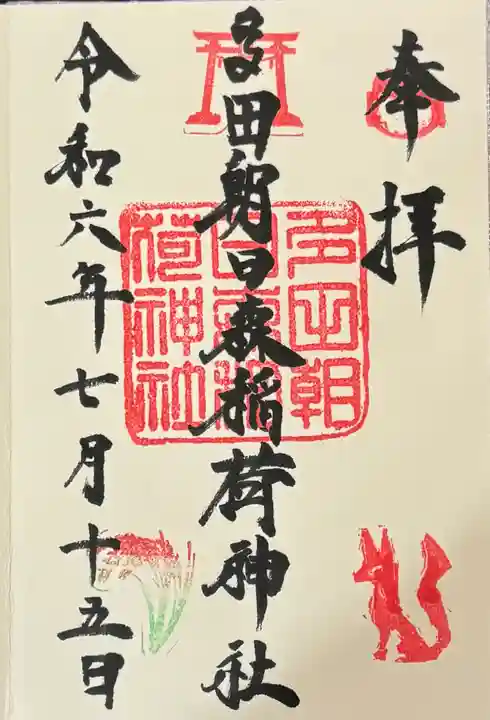 奉拝
多田朝日森稲荷神社
多田朝日森稲荷神社
令和六年七月十五日